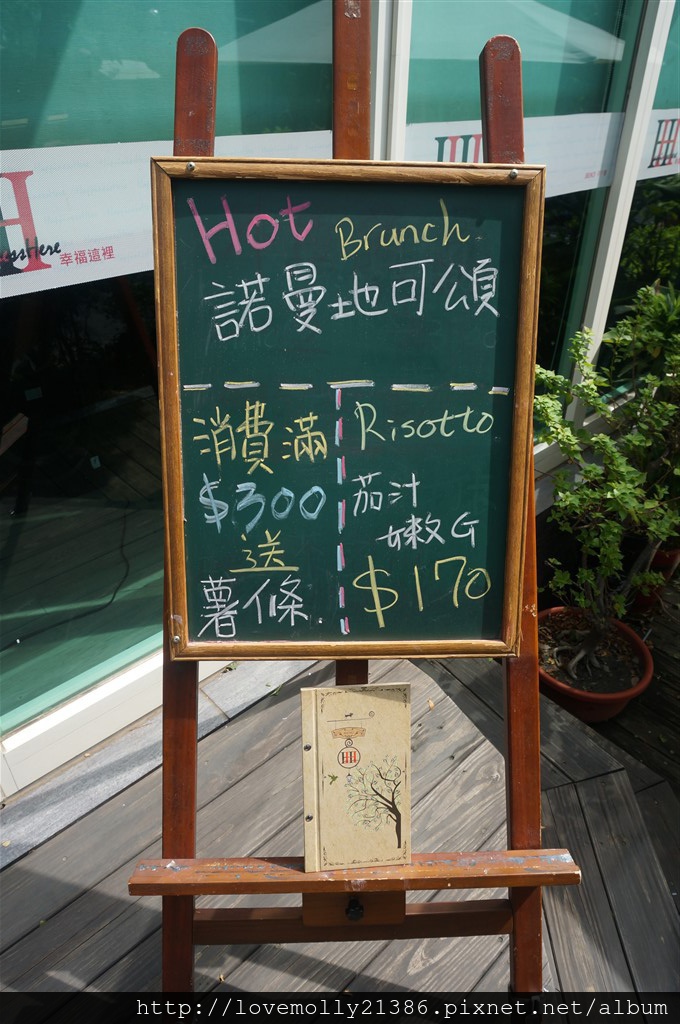 Hot Brunch
諾曼地可頌
消費滿
$300
送
薯條
Risotto
茄汁
嫩G
$170
幸福這裡
HH
http://lovemolly21386.pixnet.net/album